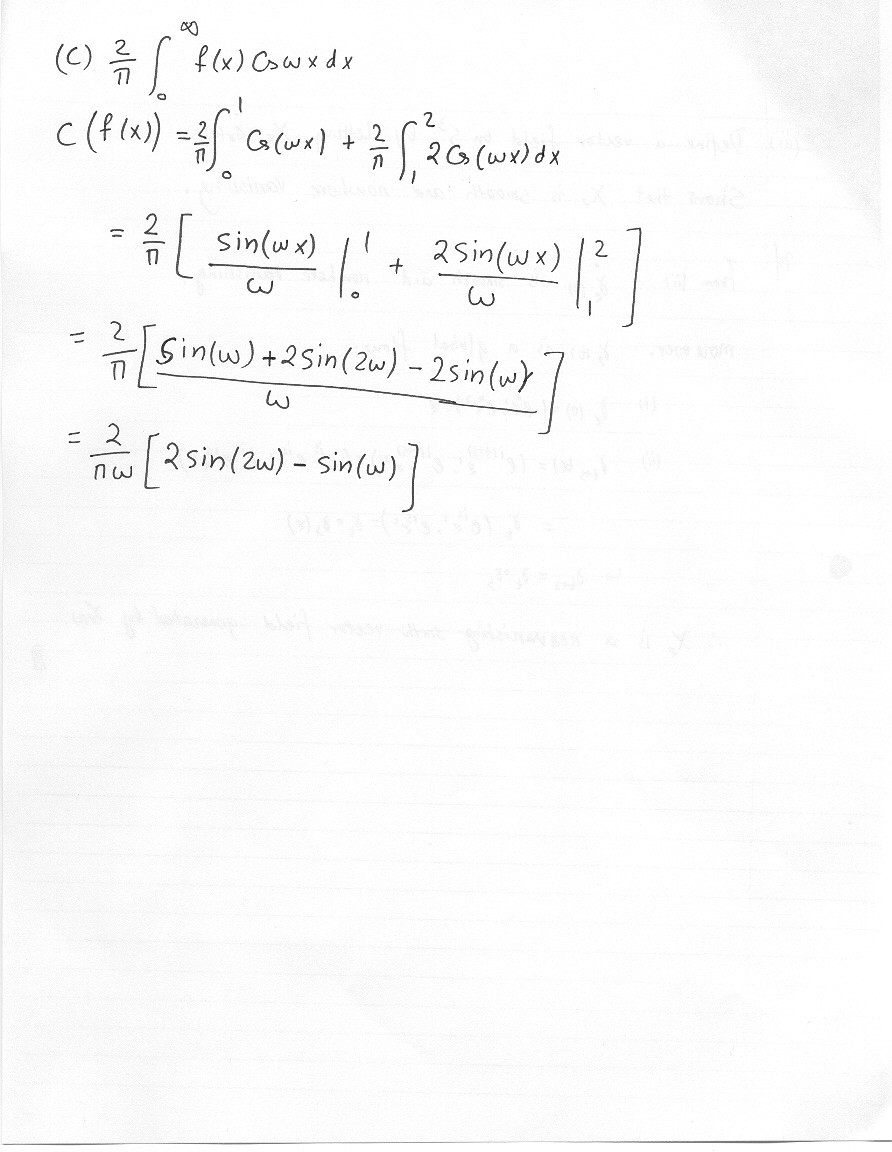 (C) 2/π ∫₀^∞ f(x) Cos ω x dx
C (f(x)) = 2/π ∫₀¹ Cos(ωx) + 2/π ∫₁² 2 Cos(ωx) dx
= 2/π [ sin(ωx)/ω |₀¹ + 2 sin(ωx)/ω |₁² ]
= 2/π [ (sin(ω) + 2 sin(2ω) − 2 sin(ω))/ω ]
= 2/πω [ 2 sin(2ω) − sin(ω) ]